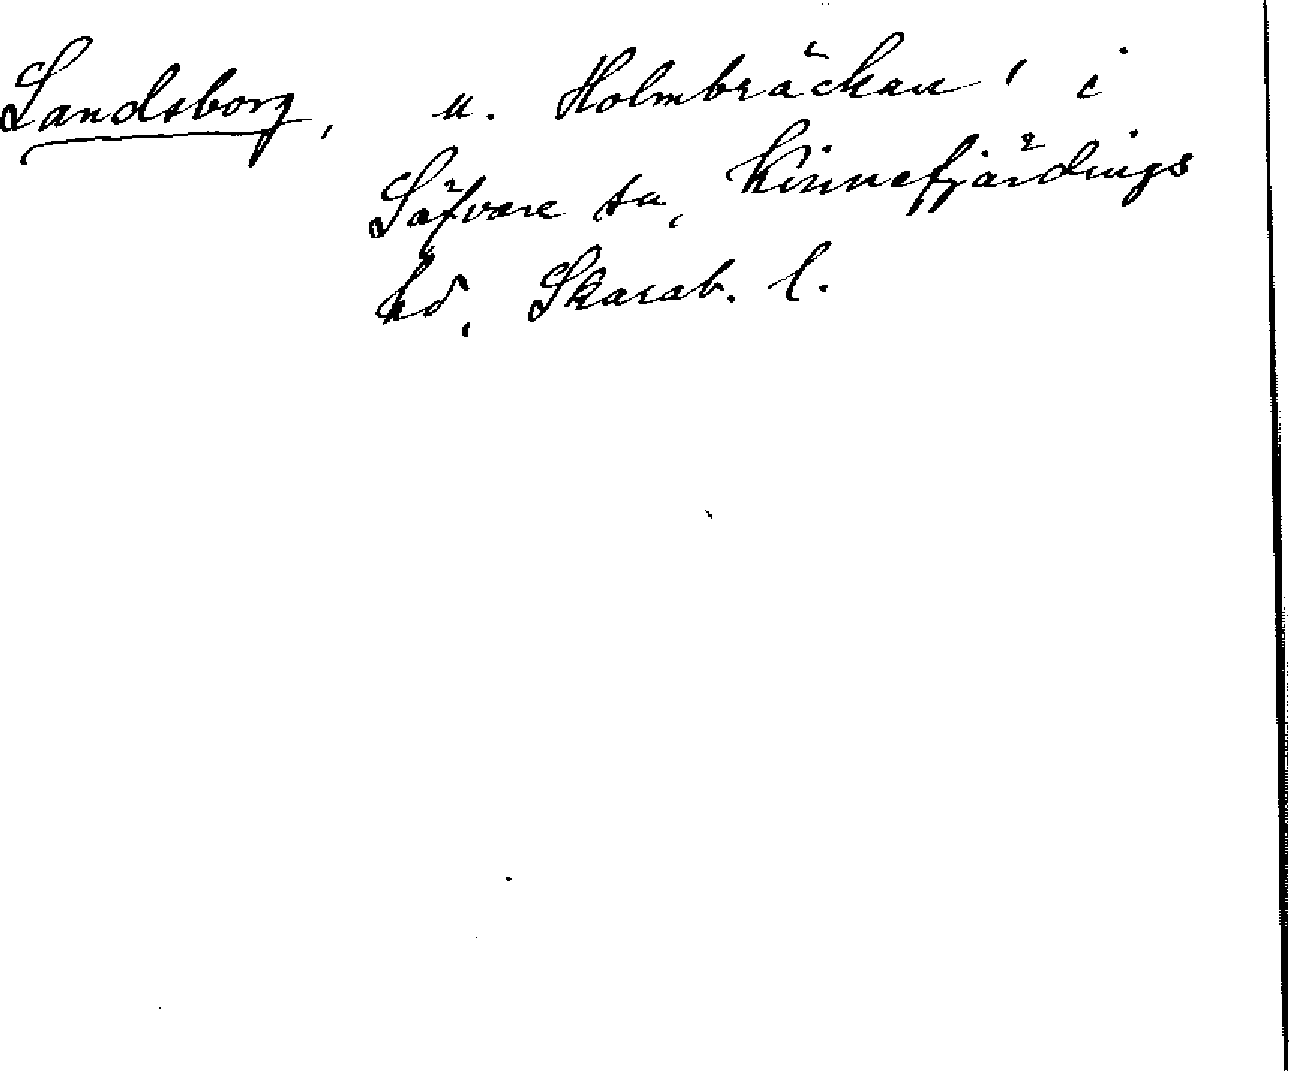 Landsborg, u. Holmbräckan, i
Säfvare sn, Kinnefjärdings
hd, Skarab. l.